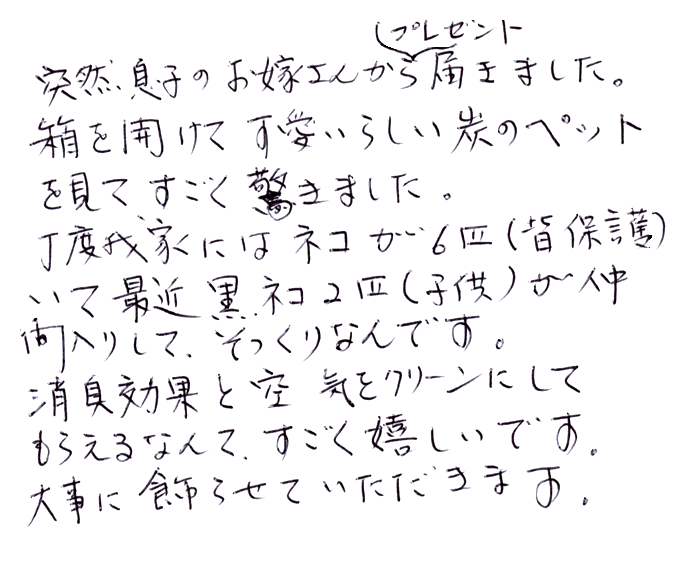 プレゼント
突然息子のお嫁さんから届きました。
箱を開けて可愛いらしい炭のペット
を見てすごく驚きました。
丁度我家にはネコが6匹(皆保護)
いて最近黒ネコ2匹(子供)が仲
間入りして、そっくりなんです。
消臭効果と空気をクリーンにして
もらえるなんて、すごく嬉しいです。
大事に飾らせていただきます。